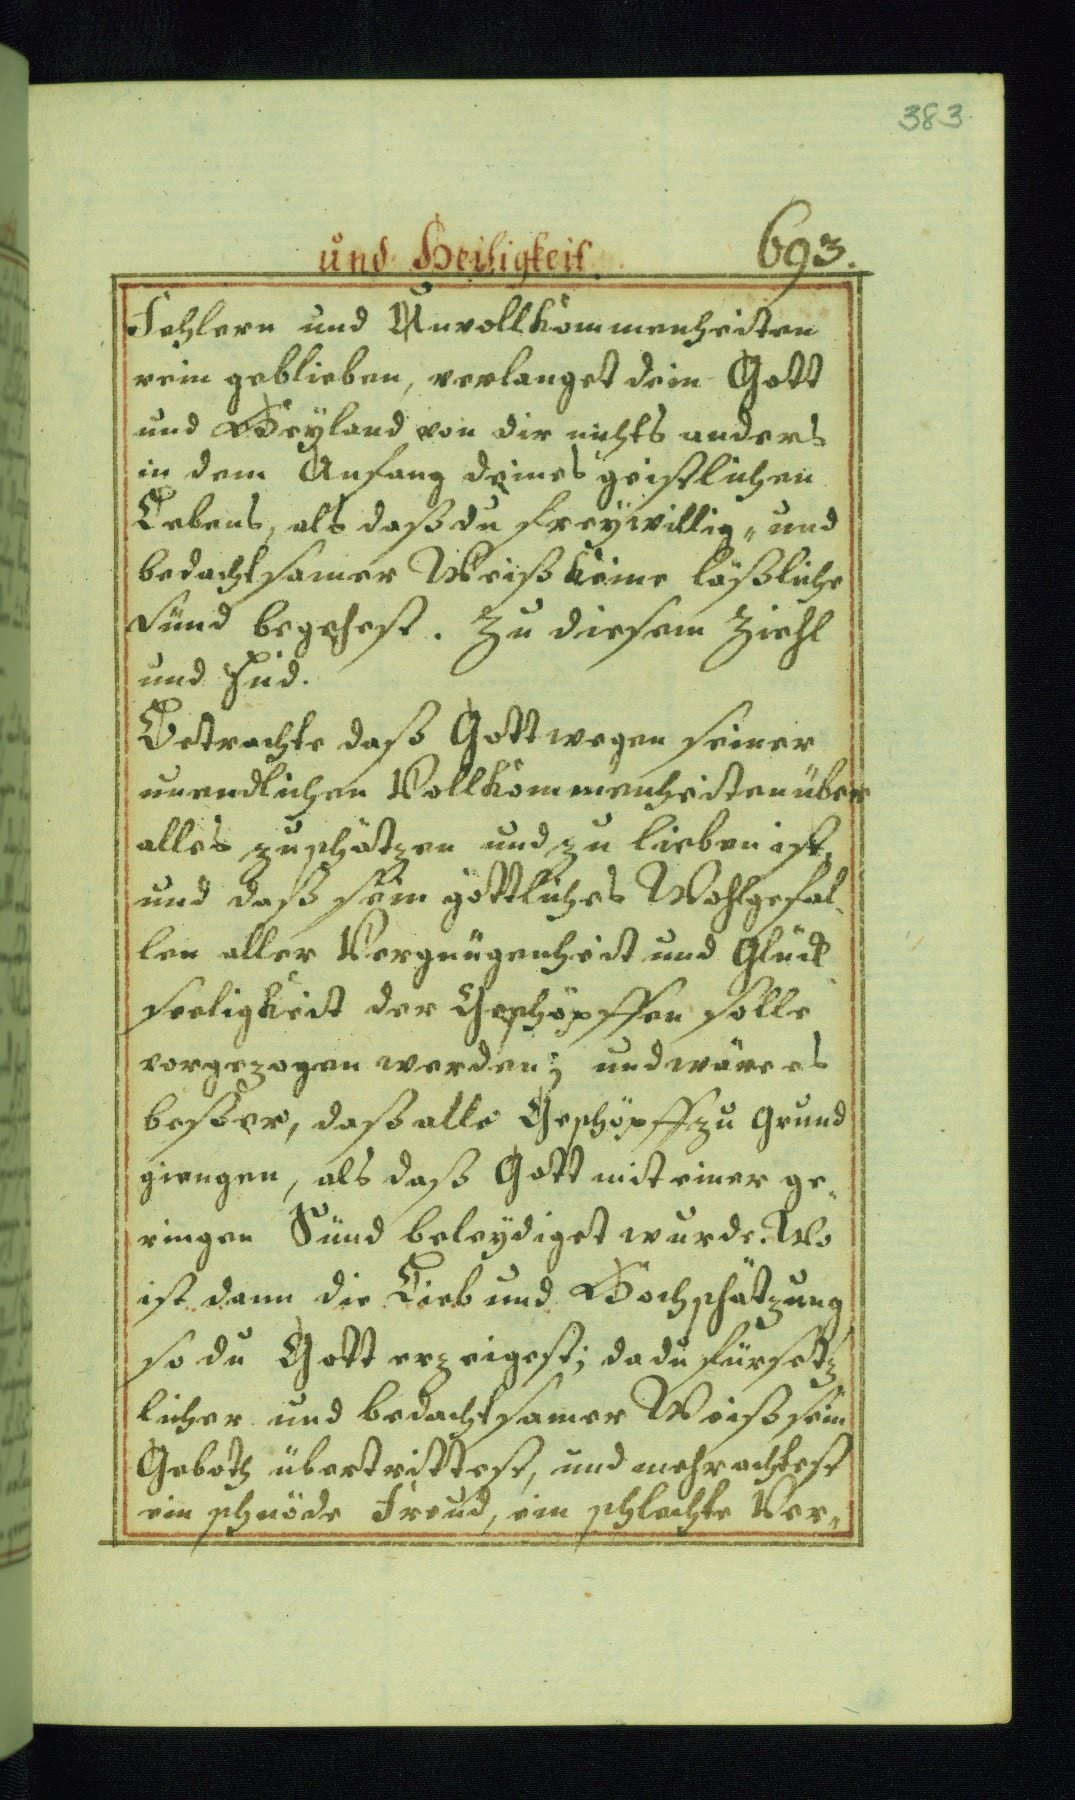 383
und Heiligkeit. 693.
Fehlern und Unvollkommenheiten
rein geblieben, verlanget dein Gott
und Heyland von dir nichts anders
in dem Anfang deines geistlichen
Lebens, als daß du freÿwillig- und
bedachtsamer Weiß keine läßliche
Sünd begehest. Zu diesem Ziehl
und End.
Betrachte daß Gott wegen seiner
unendlichen Vollkommenheiten über
alles zuschätzen und zu lieben ist,
und daß sein göttliches Wohlgefal-
len aller Vergnügenheit und Glück
seeligkeit der Geschöpffen solle
vorgezogen werden; und wäre es
besser, daß alle Geschöpff zu Grund
giengen, als daß Gott mit einer ge-
ringen Sünd beleÿdiget wurde. Wo
ist dann die Lieb und Hochschätzung
so du Gott erzeigest; da du fürsetz
licher und bedachtsamer Weiß sein
Geboth übertrittest, und mehr achtest
ein schnöde Freud, ein schlechte Ver-